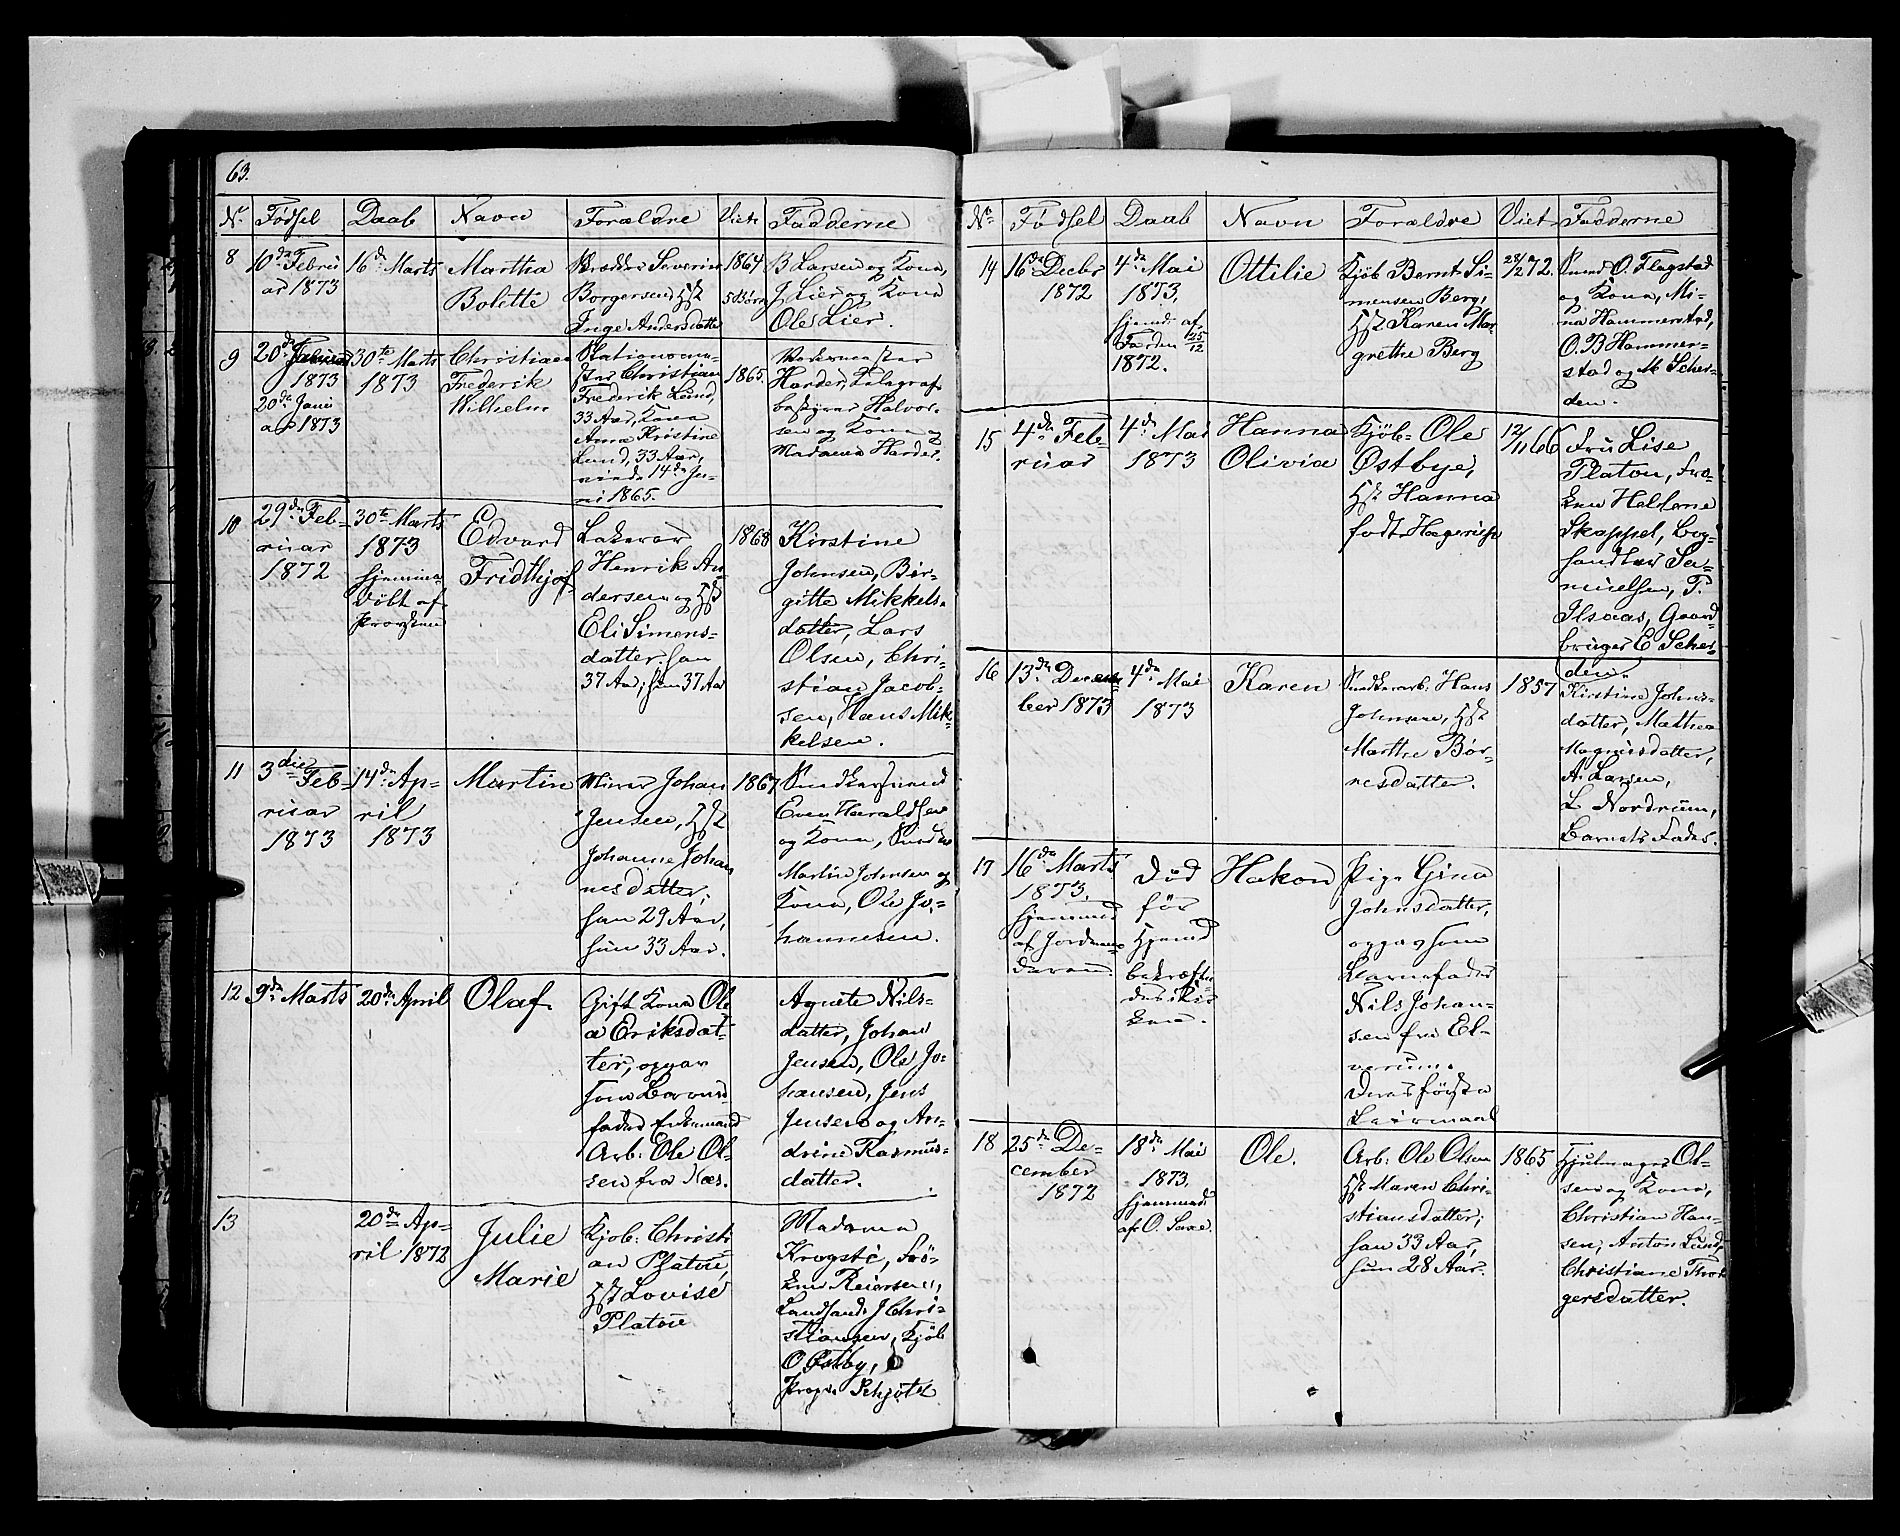 63.
No Fødsel Daab Navn Forældre Viet Fadderne
8 10de Febru
ar 1873
16de Marts
Martha
Bolette
Severin
Borgersen, Hst
Inge Andersdatter
1864
5 Børn
B Larsen og Kone,
J Lier og Kone
Ole Lier.
9 20de
1873
20de Janu
ar 1873
30te Marts
1873
Christian
Frederik
Wilhelm
Stations
Christian
Frederik Lund,
33 Aar, Kone
Anne Kristine
Lund, 33 Aar,
viede 14de Ju-
ni 1865.
1865.
Harder, Telegraf
bestyrer Halvor-
sen og Kone og
Madame Harder.
10 29de Feb-
ruar
1872
30te Marts
1873
hjemme-
døbt af
Provsten
Edvard
Fridthjof
Henrik An
dersen og Hst
Eli Simens-
datter. han
37 Aar, hun 37 Aar
1868
Kirstine
Johnsen, Bir-
gitte Mikkels-
datter, Lars
Olsen, Chri-
stian Jacob-
sen, Hans Mik-
kelsen.
11 3die Feb-
ruar
1873
14de Ap-
ril
1873
Martin
Murer Johan
Jensen, Hst
Johanne Johan
nesdatter,
han 29 Aar,
hun 33 Aar.
1867
Snedkersvend
Even Haraldsen
og Kone, Snedker
Martin Johnsen og
Kone, Ole Jo-
hannesen.
12 9de Marts
20de April
Olaf.
Gift Kone Ole
a Eriksdat-
ter, opgav
som Barne
fader Enkemand
Arb. Ole Ol-
sen fra Næs.
Agnete Nils-
datter, Johan
Jensen, Ole Jo-
hansen, Jens
Jensen og An-
drine Rasmus-
datter.
13
20de Ap-
ril 1872
Julie
Marie
Kjøb. Christi
an Platou,
Hst Lovise
Platou
Madame
Krogstie, Frø-
ken Reiersen,
Landhand. J Chri-
stiansen, Kjøb
O Østby,
Schjøtz
No Fødsel Daab Navn Forældre Viet Fadderne
14 16de Decbr
1872
4de Mai
1873,
hjemd. af
Jorden 25/12
1872.
Ottilie
Kjøb Bernt Si-
mensen Berg,
Hst Karen Mar
grethe Berg
28/12 72.
Smed O. Flagstad
og Kone, Mi-
na Hammerstad,
O. B Hammer-
stad og M Scher-
den.
15 4de Feb-
ruar
4de Mai
1873
Hanna
Olivia
Kjøb. Ole
Østbye,
Hst Hanna
født
12/11 66
Fru Lise
Platou, Frø-
ken Helene
Skappel, Bog-
handler Sa-
muelsen, P.
Ilsaas, Gaard-
bruger E Scher-
den.
16 13de Decem
ber 1873
4de Mai
1873
Karen
Snedkerarb. Hans
Johnsen, Hst
Marthe Bør-
resdatter.
1857
Kirstine Johns-
datter, Mathea
Magnusdatter,
A. Larsen,
L Nordrum,
Barnets Fader.
17 16de Marts
1873,
hjemmed
af Jordemo-
deren
Død
før
Hjemd
bekræfte-
des i Kir
ken.
Hakon
Pige Gina
Johnsdatter,
opgav som
Barnefader
Nils Johan-
sen fra El-
verum.
Deres første
Leiermaal
18 25de De-
cember
1872
18de Mai
1873,
hjemmed
af O. Saxe.
Ole.
Arb. Ole Olsen
Hst Maren Chri-
stiansdatter;
han 33 Aar,
hun 28 Aar.
1865
Hjulmager Ol-
sen og Kone,
Christian Han-
sen, Anton Lund,
Christiane Thor
gersdatter.